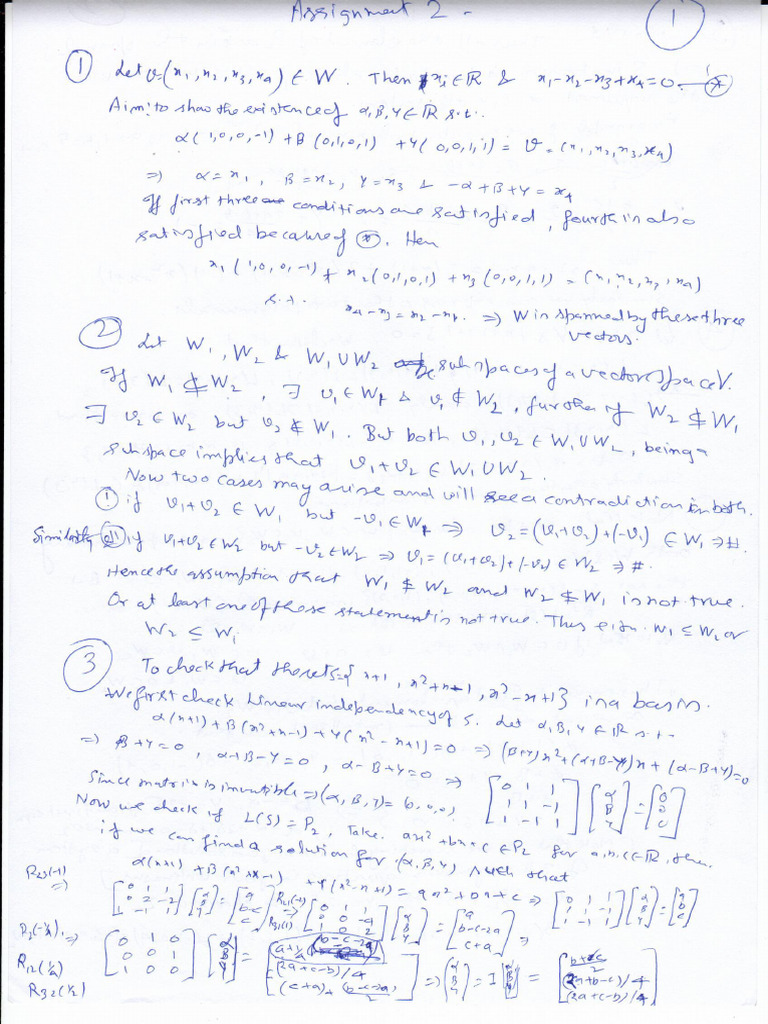 Assignment 2 -
1
① Let v=(x1, x2, x3, x4) ∈ W. Then xi ∈ R & x1-x2-x3+x4=0. —(*)
Aim: to show the existence of α, β, γ ∈ R s.t.
α(1,0,0,-1) + β(0,1,0,1) + γ(0,0,1,1) = v = (x1, x2, x3, x4)
⇒ α = x1, β = x2, γ = x3 & -α+β+γ = x4
If first three conditions are satisfied, fourth is also
satisfied because of (*). Hen
x1(1,0,0,-1) + x2(0,1,0,1) + x3(0,0,1,1) = (x1, x2, x3, x4)
s.t. x4-x3 = x2-x1. ⇒ W is spanned by these three
vectors.
② Let W1, W2 & W1∪W2 be subspaces of a vector space V.
If W1 ⊄ W2, ∃ v1 ∈ W1 & v1 ∉ W2, further if W2 ⊄ W1
∃ v2 ∈ W2 but v2 ∉ W1. But both v1, v2 ∈ W1∪W2, being a
subspace implies that v1+v2 ∈ W1∪W2.
Now two cases may arise and will see a contradiction in both.
(i) if v1+v2 ∈ W1 but -v1 ∈ W1 ⇒ v2 = (v1+v2)+(-v1) ∈ W1 ⇒#.
Similarly (ii) if v1+v2 ∈ W2 but -v2 ∈ W2 ⇒ v1 = (v1+v2)+(-v2) ∈ W2 ⇒#.
Hence the assumption that W1 ⊄ W2 and W2 ⊄ W1 is not true.
Or at least one of these statement is not true. Thus W1 ⊆ W2 or
W2 ⊆ W1
③ To check that the set S={x+1, x²+x-1, x²-x+1} is a basis.
We first check Linear independency of S. Let α, β, γ ∈ R s.t.
α(x+1) + β(x²+x-1) + γ(x²-x+1) = 0 ⇒ (β+γ)x² + (α+β-γ)x + (α-β+γ) = 0
⇒ β+γ=0, α+β-γ=0, α-β+γ=0 ⇒ [0 1 1; 1 1 -1; 1 -1 1] [α; β; γ] = [0; 0; 0]
Since matrix is invertible ⇒ (α, β, γ) = (0,0,0)
Now we check if L(S) = P2, Take ax²+bx+c ∈ P2 for a,b,c ∈ R, then
if we can find a solution for (α, β, γ) such that
α(x+1) + β(x²+x-1) + γ(x²-x+1) = ax²+bx+c ⇒ [0 1 1; 1 1 -1; 1 -1 1] [α; β; γ] = [a; b; c]
R23(-1) ⇒ [0 1 1; 0 2 -2; 1 -1 1] [α; β; γ] = [a; b-c; c]